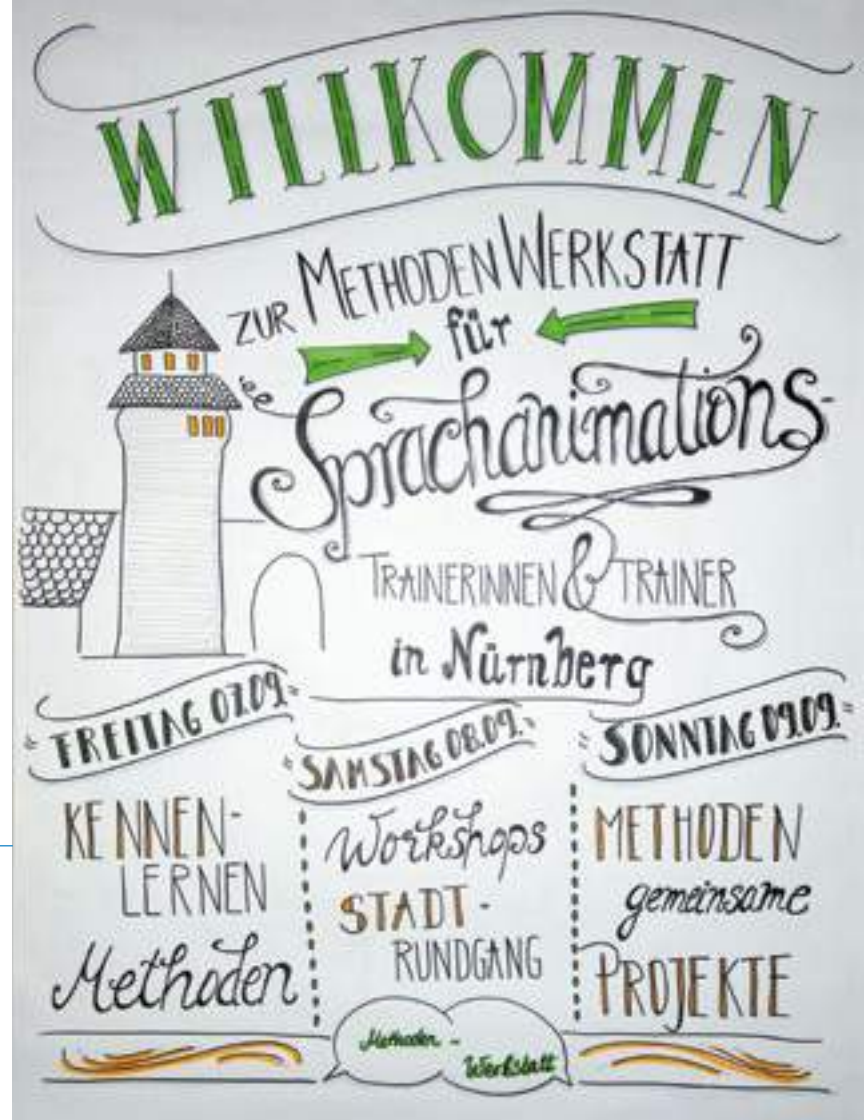 WILLKOMMEN
ZUR METHODENWERKSTATT
für
Sprachanimations-
TRAINERINNEN & TRAINER
in Nürnberg
FREITAG 07.09.
KENNEN-
LERNEN
Methoden
SAMSTAG 08.09.
Workshops
STADT-
RUNDGANG
SONNTAG 09.09.
METHODEN
gemeinsame
PROJEKTE
Methoden -
Werkstatt